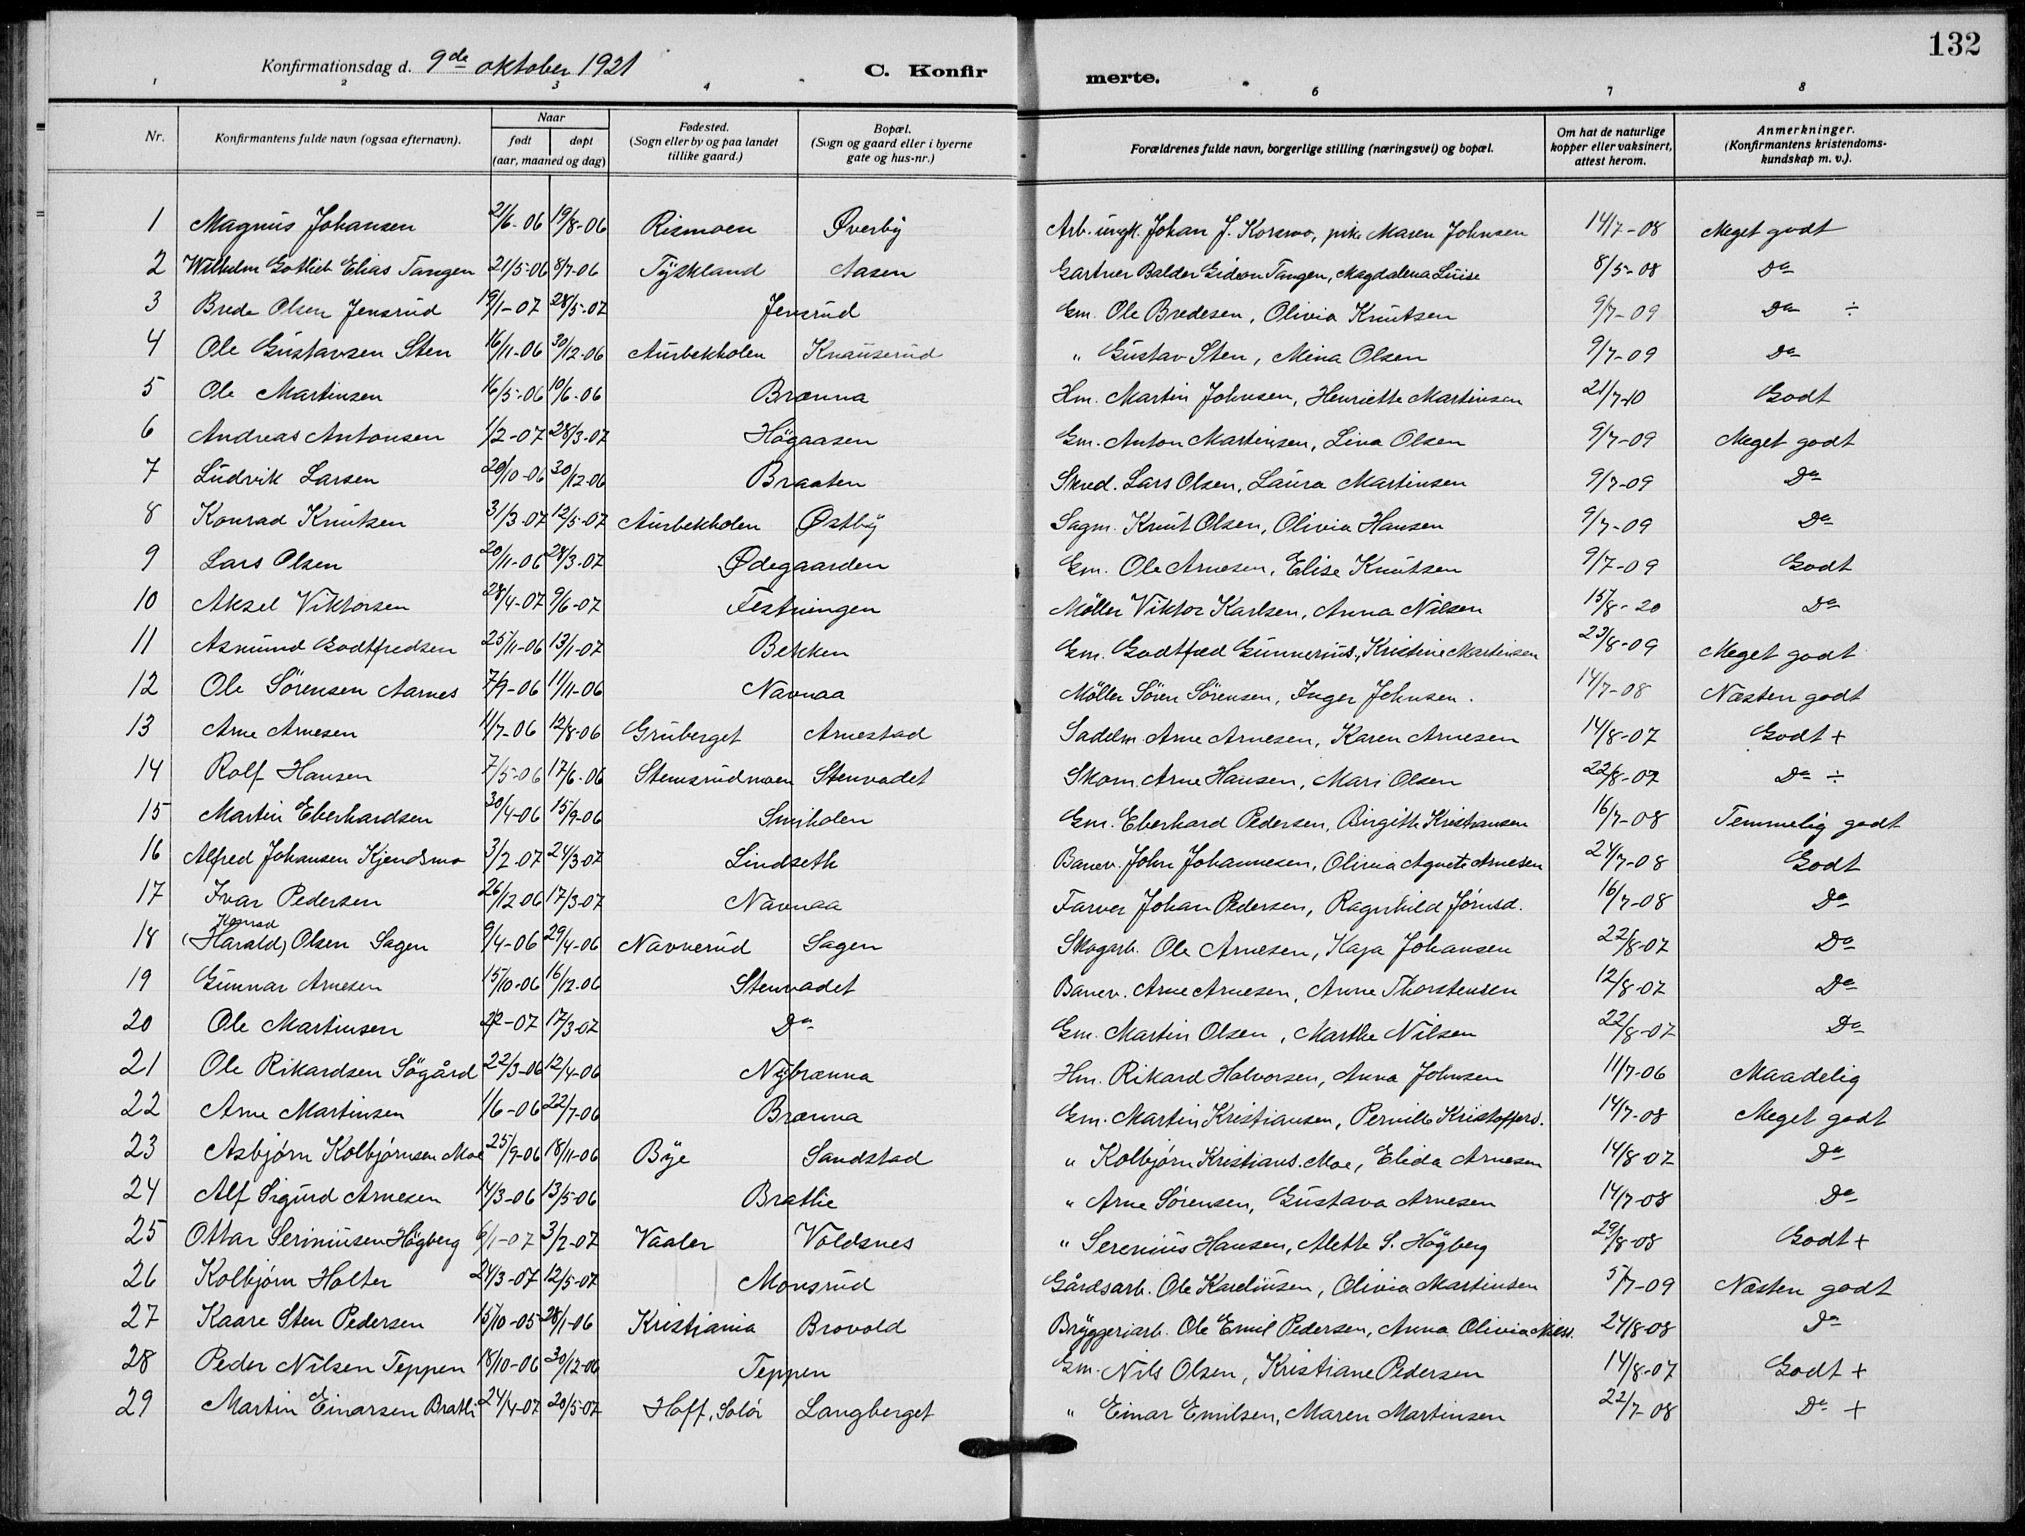 132
Konfirmationsdag d. 9de oktober 1921 C. Konfirmerte.
1 2 3 4 6 7 8
Nr. Konfirmantens fulde navn (ogsaa efternavn). Naar født døpt (aar, maaned og dag) Fødested. (Sogn eller by og paa landet tillike gaard.) Bopæl. (Sogn og gaard eller i byerne gate og hus-nr.) Forældrenes fulde navn, borgerlige stilling (næringsvei) og bopæl. Om hat de naturlige kopper eller vaksinert, attest herom. Anmerkninger. (Konfirmantens kristendoms-kundskap m. v.).
1 Magnus Johansen 21/6-06 19/8-06 Rismoen Øverby Arb. ungk. Johan J. Korsmo, pike Maren Johnsen 14/7-08 Meget godt
2 Wilhelm Gotlieb Elias Tangen 21/5-06 8/7-06 Tyskland Aasen Gartner Balder Gideon Tangen, Magdalena Luise 8/5-08 Do
3 Brede Olsen Jensrud 19/1-07 28/5-07 Jensrud Gm. Ole Bredesen, Olivia Knutsen 9/7-09 Do ÷
4 Ole Gustavsen Sten 16/11-06 30/12-06 Aurbekholen Knauserud " Gustav Sten, Mina Olsen 9/7-09 Do
5 Ole Martinsen 16/5-06 10/6-06 Brænna Hm. Martin Johnsen, Henriette Martinsen 21/7-10 Godt
6 Andreas Antonsen 1/2-07 28/3-07 Högaasen Gm. Anton Martinsen, Lina Olsen 9/7-09 Meget godt
7 Ludvik Larsen 20/10-06 30/12-06 Braaten Skred. Lars Olsen, Laura Martinsen 9/7-09 Do
8 Konrad Knutsen 31/3-07 12/5-07 Aurbekholen Østby Sagm. Knut Olsen, Olivia Hansen 9/7-09 Do
9 Lars Olsen 20/11-06 28/3-07 Ødegaarden Gm. Ole Arnesen, Elise Knutsen 9/7-09 Godt
10 Aksel Viktorsen 28/4-07 9/6-07 Festningen Møller Viktor Karlsen, Anna Nilsen 15/8-20 Do
11 Asmund Godtfredsen 25/11-06 13/1-07 Bekken Gm. Godtfred Gunnerius., Kristine Martinsen 23/8-09 Meget godt
12 Ole Sörensen Aarnes 7/9-06 11/11-06 Navnaa Møller Sören Sörensen, Inger Johnsen. 14/7-08 Næsten godt
13 Arne Arnesen 11/7-06 12/8-06 Gruberget Arnestad Sadelm. Arne Arnesen, Karen Arnesen 14/8-07 Godt +
14 Rolf Hansen 7/5-06 17/6-06 Stemsrudmoen Stenvadet Skom. Arne Hansen, Mari Olsen 22/8-07 Do ÷
15 Martin Eberhardsen 30/4-06 15/9-06 Smiholen Gm. Eberhard Pedersen, Birgitte Kristiansen 16/7-08 Temmelig godt
16 Alfred Johansen Kjendsmo 3/2-07 24/3-07 Lindseth Banev. John Johannesen, Olivia Agnete Arnesen 24/7-08 Godt
17 Ivar Pedersen 26/12-06 17/3-07 Navnaa Farver Johan Pedersen, Ragnhild Jørnsd. 16/7-08 Do
18 Konrad (Harald) Olsen Sagen 9/4-06 29/4-06 Navnerud Sagen Skogarb. Ole Arnesen, Kaja Johansen 22/8-07 Do
19 Gunnar Arnesen 15/10-06 16/12-06 Stenvadet Banev. Arne Arnesen, Anne Thorstensen 12/8-07 Do
20 Ole Martinsen 2/2-07 17/3-07 Do Gm. Martin Olsen, Marthe Nilsen 22/8-07 Do
21 Ole Rikardsen Sögård 22/3-06 12/4-06 Nybrænna Hm. Rikard Halvorsen, Anna Johnsen 11/7-06 Maadelig
22 Arne Martinsen 1/6-06 22/7-06 Brænna Gm. Martin Kristiansen, Pernille Kristoffers. 14/7-08 Meget godt
23 Asbjørn Kolbjørnsen Moe 25/9-06 18/11-06 Bye Sandstad " Kolbjørn Kristians. Moe, Elida Arnesen 14/8-07 Do
24 Alf Sigurd Arnesen 14/3-06 13/5-06 Brathie " Arne Sørensen, Gustava Arnesen 14/7-08 Do
25 Ottar Seriniusen Högberg 6/1-07 3/2-07 Vaaler Voldsnes " Serenius Hansen, Alette S. Högberg 29/8-08 Godt +
26 Kolbjørn Holter 24/3-07 12/5-07 Monsrud Gårdsarb. Ole Kareliusen, Olivia Martinsen 5/7-09 Næsten godt
27 Kaare Sten Pedersen 15/10-05 28/1-06 Kristiania Brovold Bryggeriarb. Ole Emil Pedersen, Anna Olivia Nilss. 24/8-08 Do
28 Peder Nilsen Teppen 18/10-06 30/12-06 Teppen Gm. Nils Olsen, Kristiane Pedersen 14/8-07 Godt +
29 Martin Einarsen Bratli 24/4-07 20/5-07 Hoff, Solör Langberget " Einar Emilsen, Maren Martinsen 22/7-08 Do +